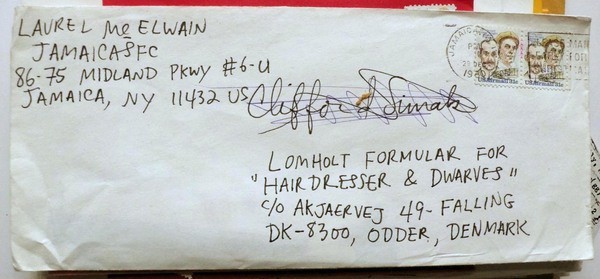 LAUREL McELWAIN
JAMAICASFC
86-75 MIDLAND PKWY #6-U
JAMAICA, NY 11432 US
Clifford D Simak
LOMHOLT FORMULAR FOR
"HAIRDRESSER & DWARVES"
c/o AKJAERVEJ 49- FALLING
DK-8300, ODDER, DENMARK
JAMAICA